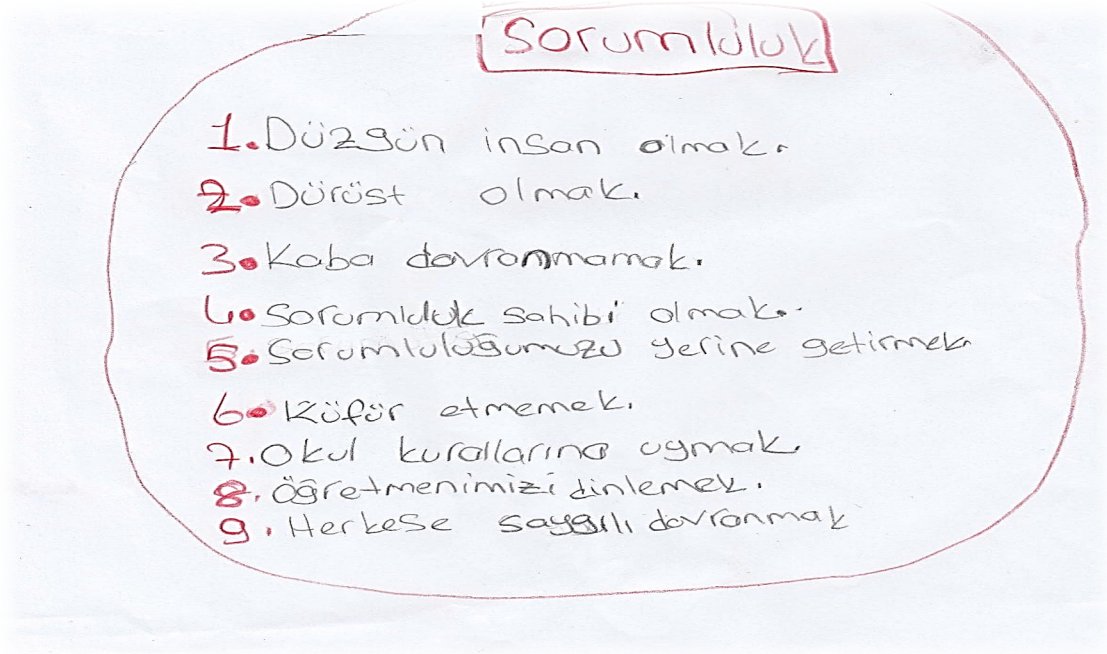 Sorumluluk
1. Düzgün insan olmak.
2. Dürüst olmak.
3. Kaba davranmamak.
4. Sorumluluk sahibi olmak.
5. Sorumluluğumuzu yerine getirmek
6. Küfür etmemek.
7. Okul kurallarına uymak.
8. Öğretmenimizi dinlemek.
9. Herkese saygılı davranmak